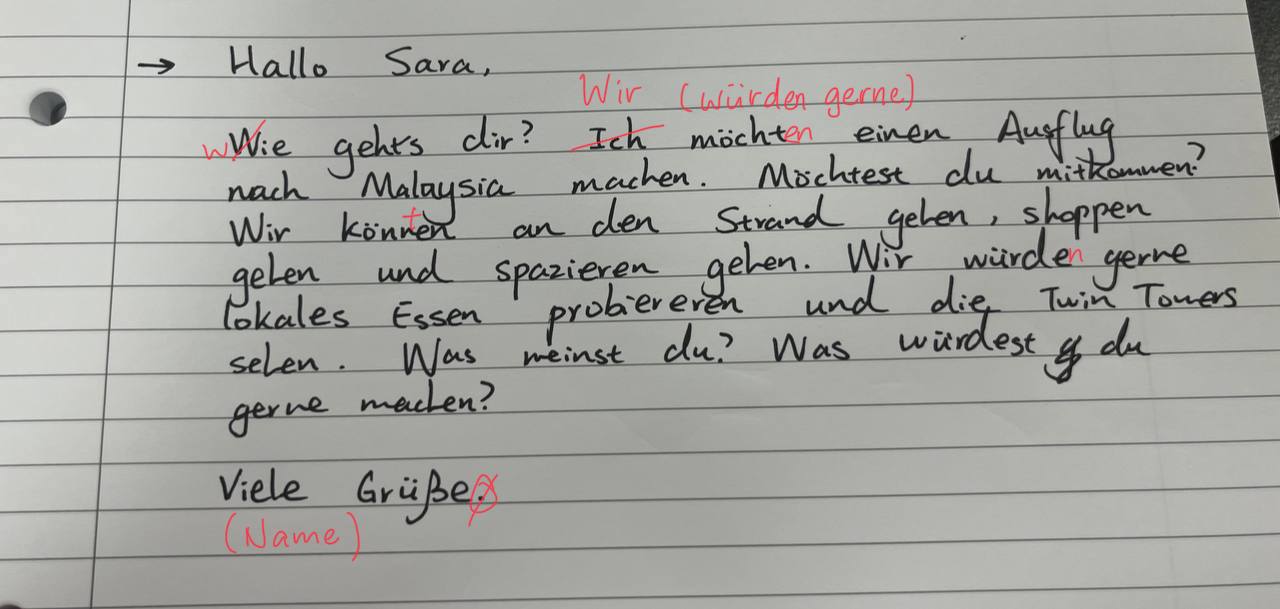 → Hallo Sara,
Wir (würden gerne)
wWie geht's dir? Ich möchten einen Ausflug
nach Malaysia machen. Möchtest du mitkommen?
Wir könnten an den Strand gehen, shoppen
gehen und spazieren gehen. Wir würden gerne
lokales Essen probiereren und die Twin Towers
sehen. Was meinst du? Was würdest du
gerne machen?
Viele Grüße.
(Name)